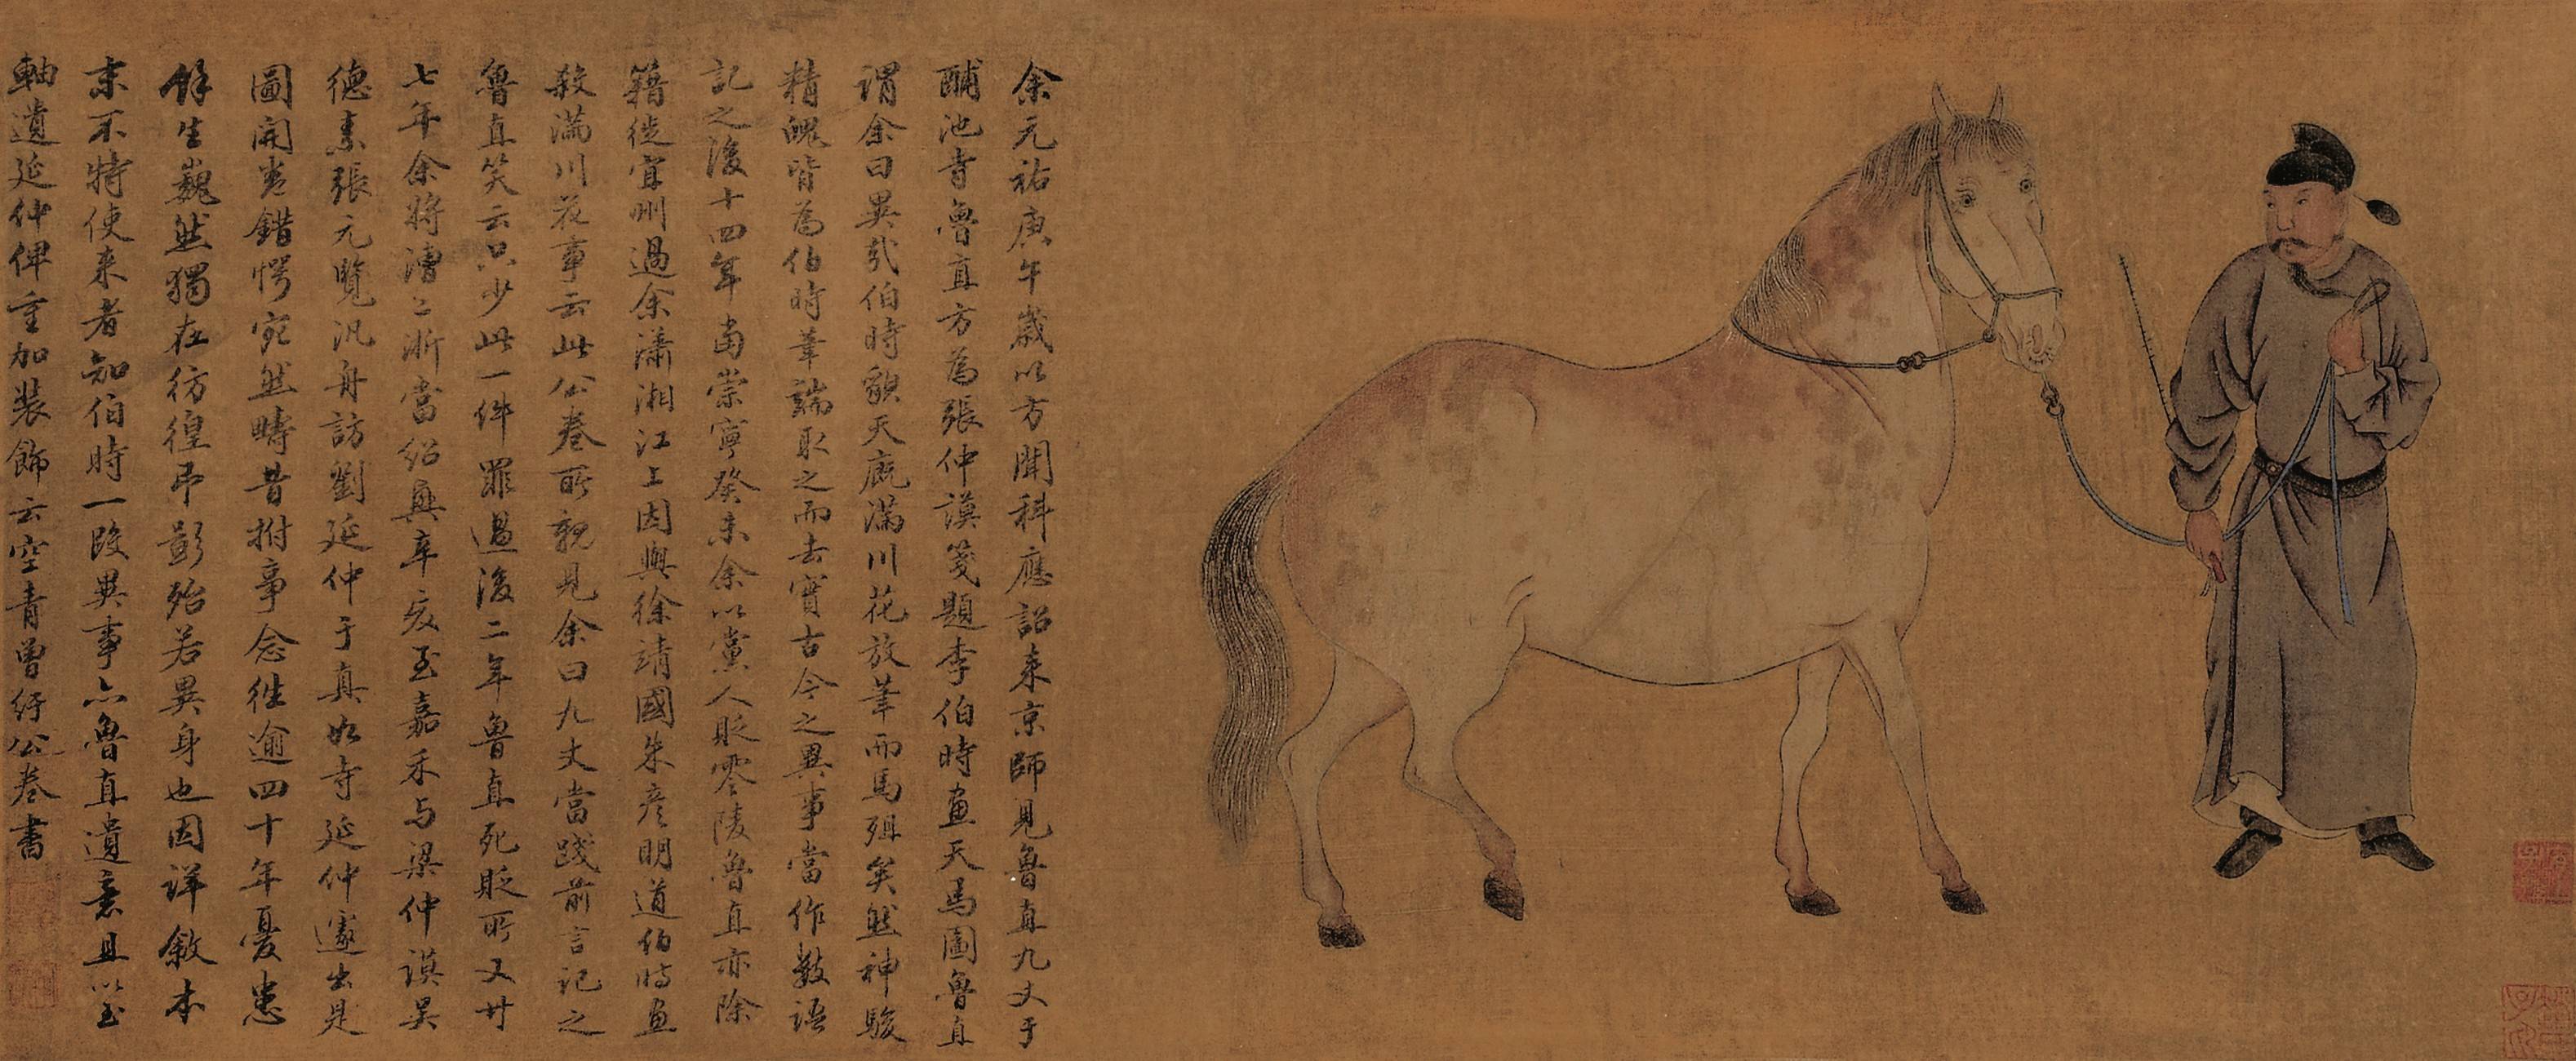 余元祐庚午歲以方聞科應詔来京師見魯直九丈于
酺池寺魯直方為張仲謨箋題李伯時畫天馬圖魯直
謂余曰異哉伯時貌天廄滿川花放筆而馬殂矣盖神駿
精魄皆為伯時筆端取之而去實古今之異事當作數語
記之後十四年當崇寧癸未余以黨人貶零陵魯直亦除
籍徙宜州過余瀟湘江上因與徐靖國朱彦明道伯時畫
殺滿川花事云此公卷所親見余曰九丈當踐前言記之
魯直笑云只少此一件罪過後二年魯直死貶所又廿
七年余將漕二浙當紹興辛亥至嘉禾与梁仲謨吴
德素張元覽汎舟訪劉延仲于真如寺延仲遽出是
圖開卷錯愕宛然疇昔拊事念徃逾四十年憂患
餘生巍然獨在彷徨弔影殆若異身也因詳敘本
末不特使来者知伯時一段異事亦魯直遺意且以玉
軸遺延仲俾重加裝飾云空青曾紆公卷書